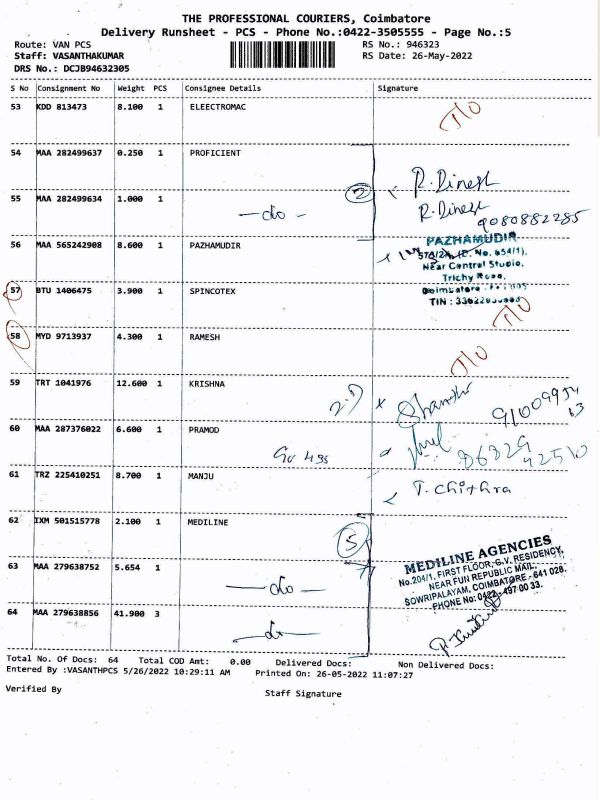 THE PROFESSIONAL COURIERS, Coimbatore
Delivery Runsheet - PCS - Phone No.:0422-3505555 - Page No.:5
Route: VAN PCS RS No.: 946323
Staff: VASANTHAKUMAR RS Date: 26-May-2022
DRS No.: DCJB94632305
S No Consignment No Weight PCS Consignee Details Signature
53 KDD 813473 8.100 1 ELEECTROMAC
54 MAA 282499637 0.250 1 PROFICIENT
2 R. Dinesh
55 MAA 282499634 1.000 1
- do - R. Dinesh
9080882285
56 MAA 565242908 8.600 1 PAZHAMUDIR
PAZHAMUDIR
Near Central Studio,
Trichy Road,
57 BTU 1406475 3.900 1 SPINCOTEX
58 MYD 9713937 4.300 1 RAMESH
59 TRT 1041976 12.600 1 KRISHNA
60 MAA 287376022 6.600 1 PRAMOD
86829
42510
61 TRZ 225410251 8.700 1 MANJU
T. Chithra
62 IXM 501515778 2.100 1 MEDILINE
5
63 MAA 279638752 5.654 1
- do -
MEDILINE AGENCIES
No.204/1, FIRST FLOOR, G.V. RESIDENCY,
NEAR FUN REPUBLIC MAIL,
SOWRIPALAYAM, COIMBATORE - 641 028.
PHONE No: 0422- 497 00 33.
64 MAA 279638856 41.900 3
- do -
Total No. Of Docs: 64 Total COD Amt: 0.00 Delivered Docs: Non Delivered Docs:
Entered By :VASANTHPCS 5/26/2022 10:29:11 AM Printed On: 26-05-2022 11:07:27
Verified By Staff Signature